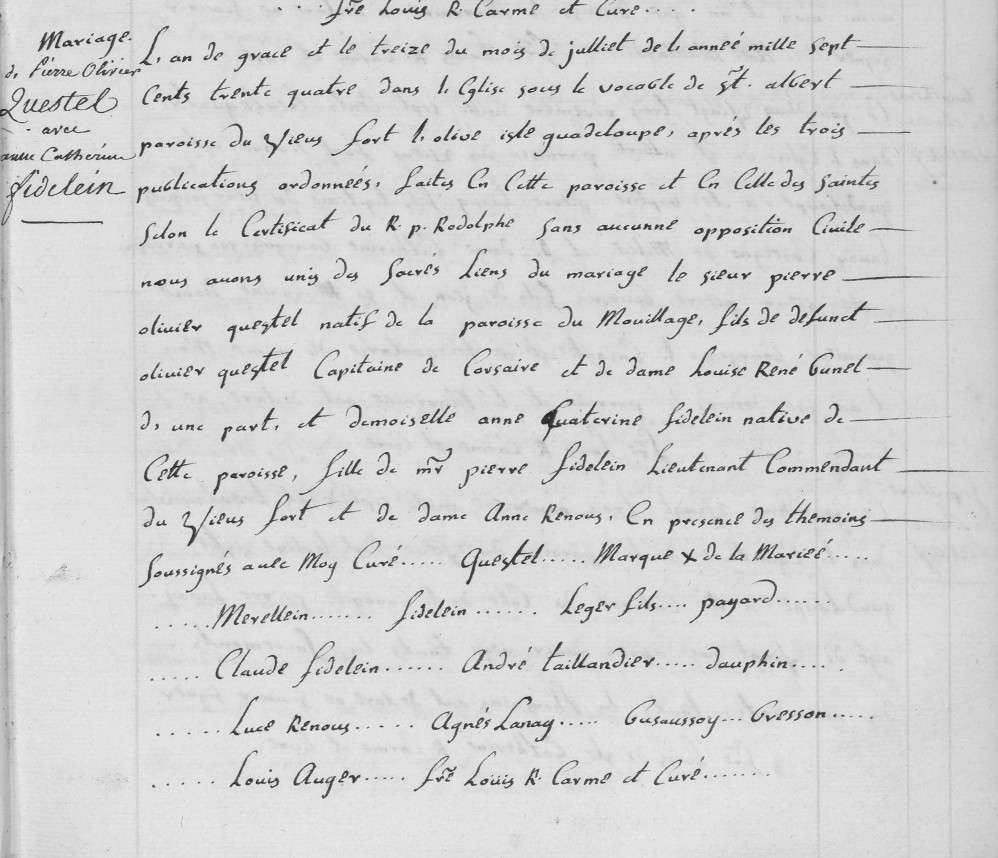 .... frè Louis R. Carme et Curé ....
Mariage.
de Pierre Olivier
Questel
avec
anne Catherine
fidelein
L'an de grace et le treize du mois de julliet de l'anneé mille sept
Cents trente quatre dans l'Eglise sous le vocable de St. albert
paroisse du Vieus fort l'olive isle guadeloupe, aprés les trois
publications ordonneés, faites En Cette paroisse et En Celle des Saintes
Selon le Certificat du R. p. Rodolphe Sans aucunne opposition Civile
nous avons unis des Sacrés Liens du mariage le sieur pierre
olivier questel natif de la paroisse du Mouillage, fils de defunct
olivier questel Capitaine de Corsaire et de dame Louise René Gunel
d'une part, et demoiselle anne Quaterine fidelein native de
Cette paroisse, fille de mr. pierre fidelein Lieutenant Commendant
du Vieus fort et de dame Anne Renous, En presence des themoins
Soussignés avec Moy Curé ..... Questel ..... Marque x de la Marieé .....
..... Merellein ....... fidelein ....... Leger fils .... payard ......
..... Claude fidelein ...... André taillandier ..... dauphin ....
...... Luce Renous ...... Agnés Lanay ..... Gusaussoy ... Gresson .....
..... Louis Auger ..... frè Louis R. Carme et Curé ........